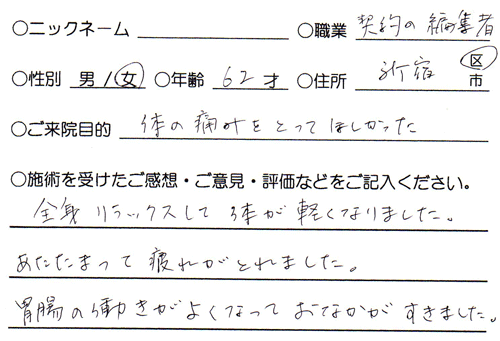 ○ニックネーム ○職業 契約の編集者
○性別 男 / 女 ○年齢 62 才 ○住所 新宿 区 市
○ご来院目的 体の痛みをとってほしかった
○施術を受けたご感想・ご意見・評価などをご記入ください。
全身リラックスして体が軽くなりました。
あたたまって疲れがとれました。
胃腸の働きがよくなっておなかがすきました。